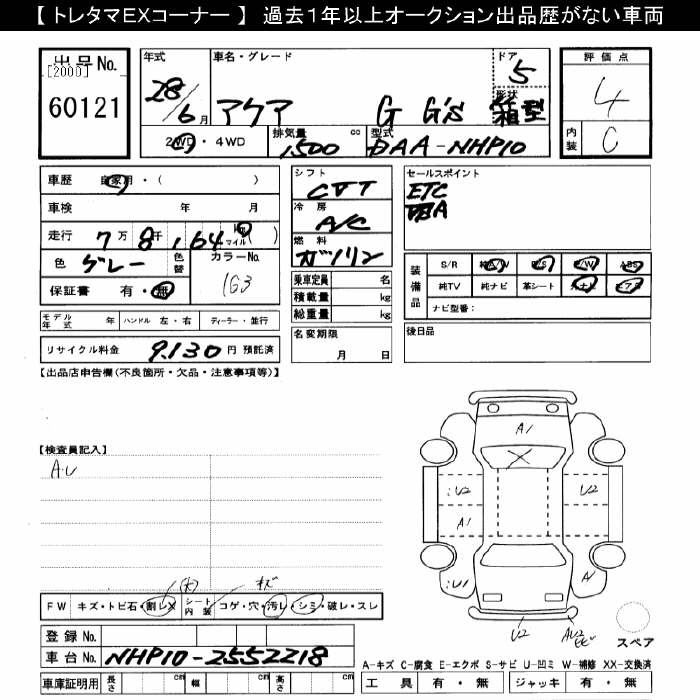 【 トレタマEXコーナー 】 過去1年以上オークション出品歴がない車両
出品No.
[2000]
60121
年式
28/6月
車名・グレード
アクア G G's
ドア
5
形状
箱型
2WD・4WD
排気量
1,500 cc
型式
DAA-NHP10
評価点
4
内装
C
車歴 自家用・( )
車検 年 月
走行 7万8千,164 km マイル )
色 グレー 色替 カラーNo. 1G3
保証書 有・無
モデル年式 年 ハンドル 左・右 ディーラー・並行
リサイクル料金 9,130 円 預託済
シフト
CVT
冷房
A/C
燃料
ガソリン
乗車定員 名
積載量 kg
総重量 kg
名変期限
月 日
セールスポイント
ETC
装備品
S/R 純A/W P/S P/W ABS
純TV 純ナビ 革シート カナビ エアB
ナビ型番:
後日品
【出品店申告欄(不良箇所・欠品・注意事項等)】
【検査員記入】
AU
A1
U2
U2
A1
U1
A
U2
AU2
スペア
FW キズ・トビ石・割レX シート内装 コゲ・穴・汚レ・シミ・破レ・スレ
(大) キズ
登録No.
車台No. NHP10-2552218
車庫証明用 長さ cm 幅 cm 高さ cm
A-キズ C-腐食 E-エクボ S-サビ U-凹ミ W-補修 XX-交換済
工具 有・無 ジャッキ 有・無